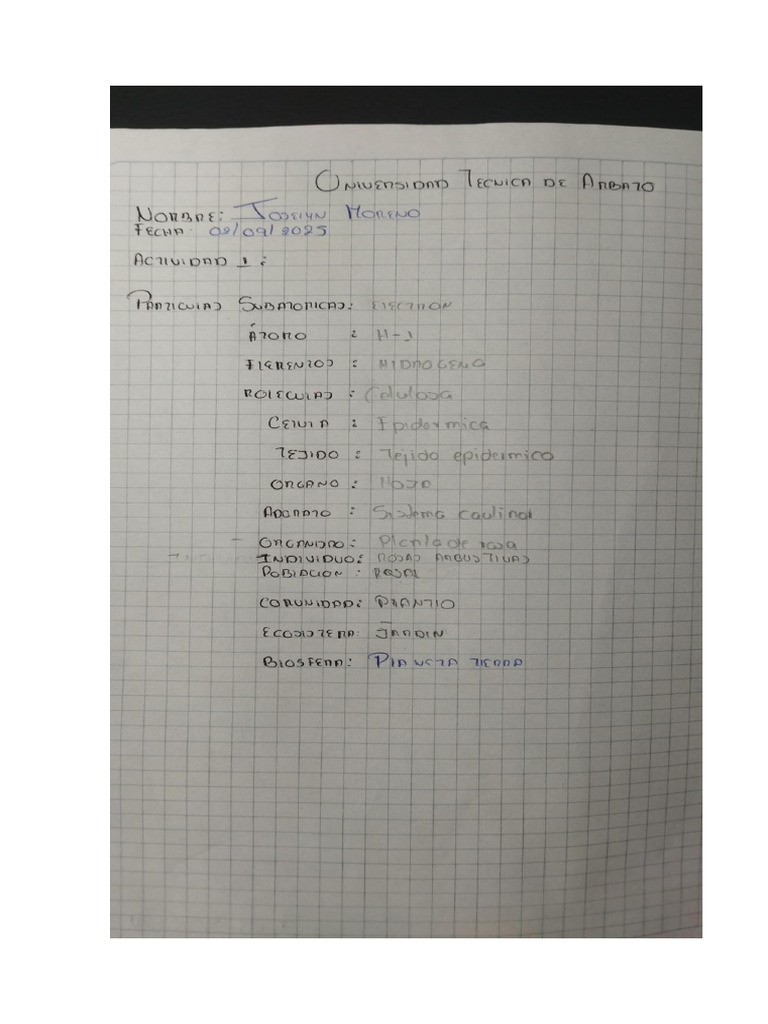 UNIVERSIDAD TECNICA DE AMBATO
NOMBRE: JOSELYN MORENO
FECHA: 02/09/2025
ACTIVIDAD 1:
PARTICULAS SUBATOMICAS: ELECTRON
ÁTOMO : H-1
ELEMENTOS : HIDROGENO
MOLECULAS : Celulosa
CELULA : Epidermica
TEJIDO : Tejido epidermico
ORGANO : HOJA
APARATO : Sistema caulinar
- ORGANISMO: Planta de rosa
INDIVIDUO: ROSAS ARBUSTIVAS
POBLACION : ROSAL
COMUNIDAD: PLANTIO
ECOSISTEMA: JARDIN
BIOSFERA: PLANETA TIERRA